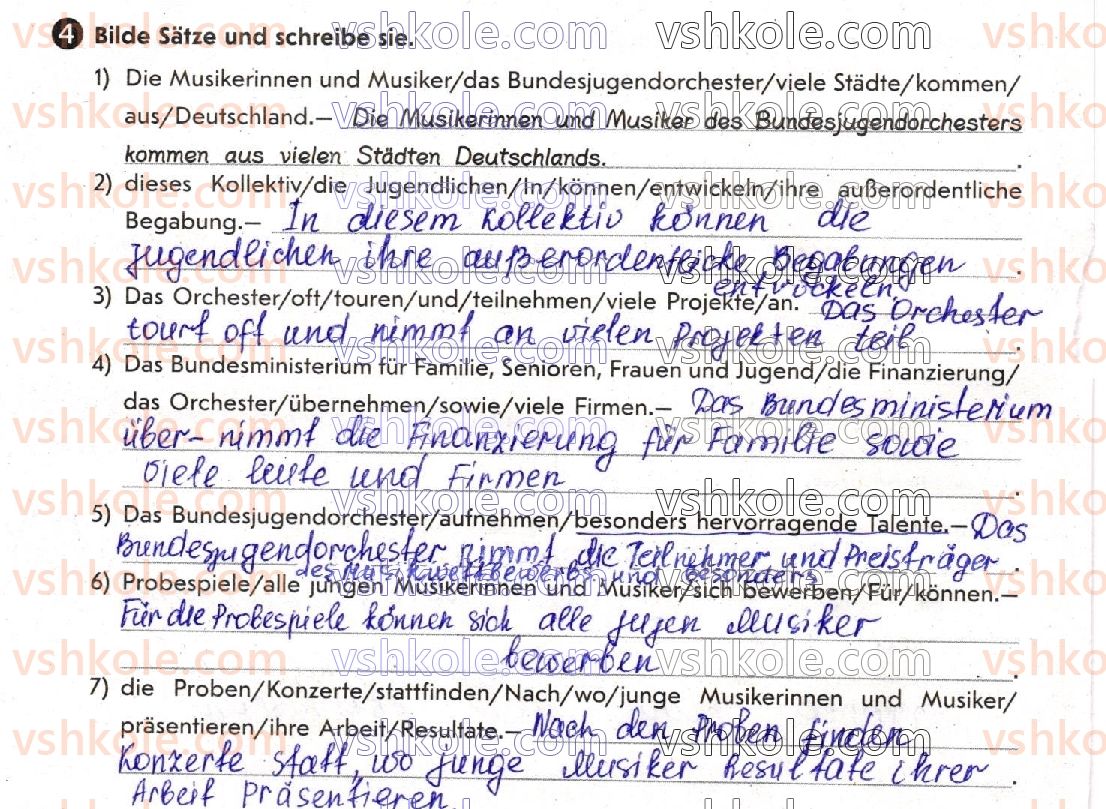 4 Bilde Sätze und schreibe sie.
1) Die Musikerinnen und Musiker/das Bundesjugendorchester/viele Städte/kommen/
aus/Deutschland.– Die Musikerinnen und Musiker des Bundesjugendorchesters
kommen aus vielen Städten Deutschlands.
2) dieses Kollektiv/die Jugendlichen/In/können/entwickeln/ihre außerordentliche
Begabung.– In diesem Kollektiv können die
Jugendlichen ihre außerordentliche Begabungen
entwickeln.
3) Das Orchester/oft/touren/und/teilnehmen/viele Projekte/an. Das Orchester
tourt oft und nimmt an vielen Projekten teil.
4) Das Bundesministerium für Familie, Senioren, Frauen und Jugend/die Finanzierung/
das Orchester/übernehmen/sowie/viele Firmen.– Das Bundesministerium
über-nimmt die Finanzierung für Familie sowie
viele leute und Firmen.
5) Das Bundesjugendorchester/aufnehmen/besonders hervorragende Talente.– Das
Bundesjugendorchester nimmt die Teilnehmer und Preisträger.
des Musikwettbewerbs und besonders
6) Probespiele/alle jungen Musikerinnen und Musiker/sich bewerben/Für/können.–
Für die Probespiele können sich alle jugen Musiker
bewerben.
7) die Proben/Konzerte/stattfinden/Nach/wo/junge Musikerinnen und Musiker/
präsentieren/ihre Arbeit/Resultate.– Nach den Proben finden
Konzerte statt, wo junge Musiker Resultate ihrer.
Arbeit präsentieren.
vshkole.com